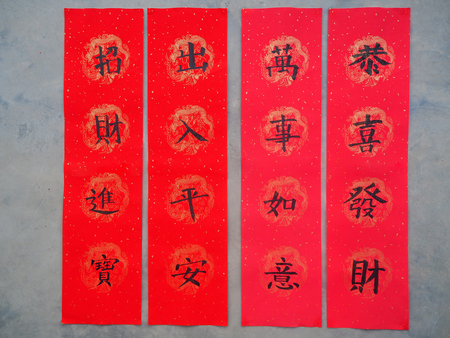 恭喜發財
萬事如意
出入平安
招財進寶